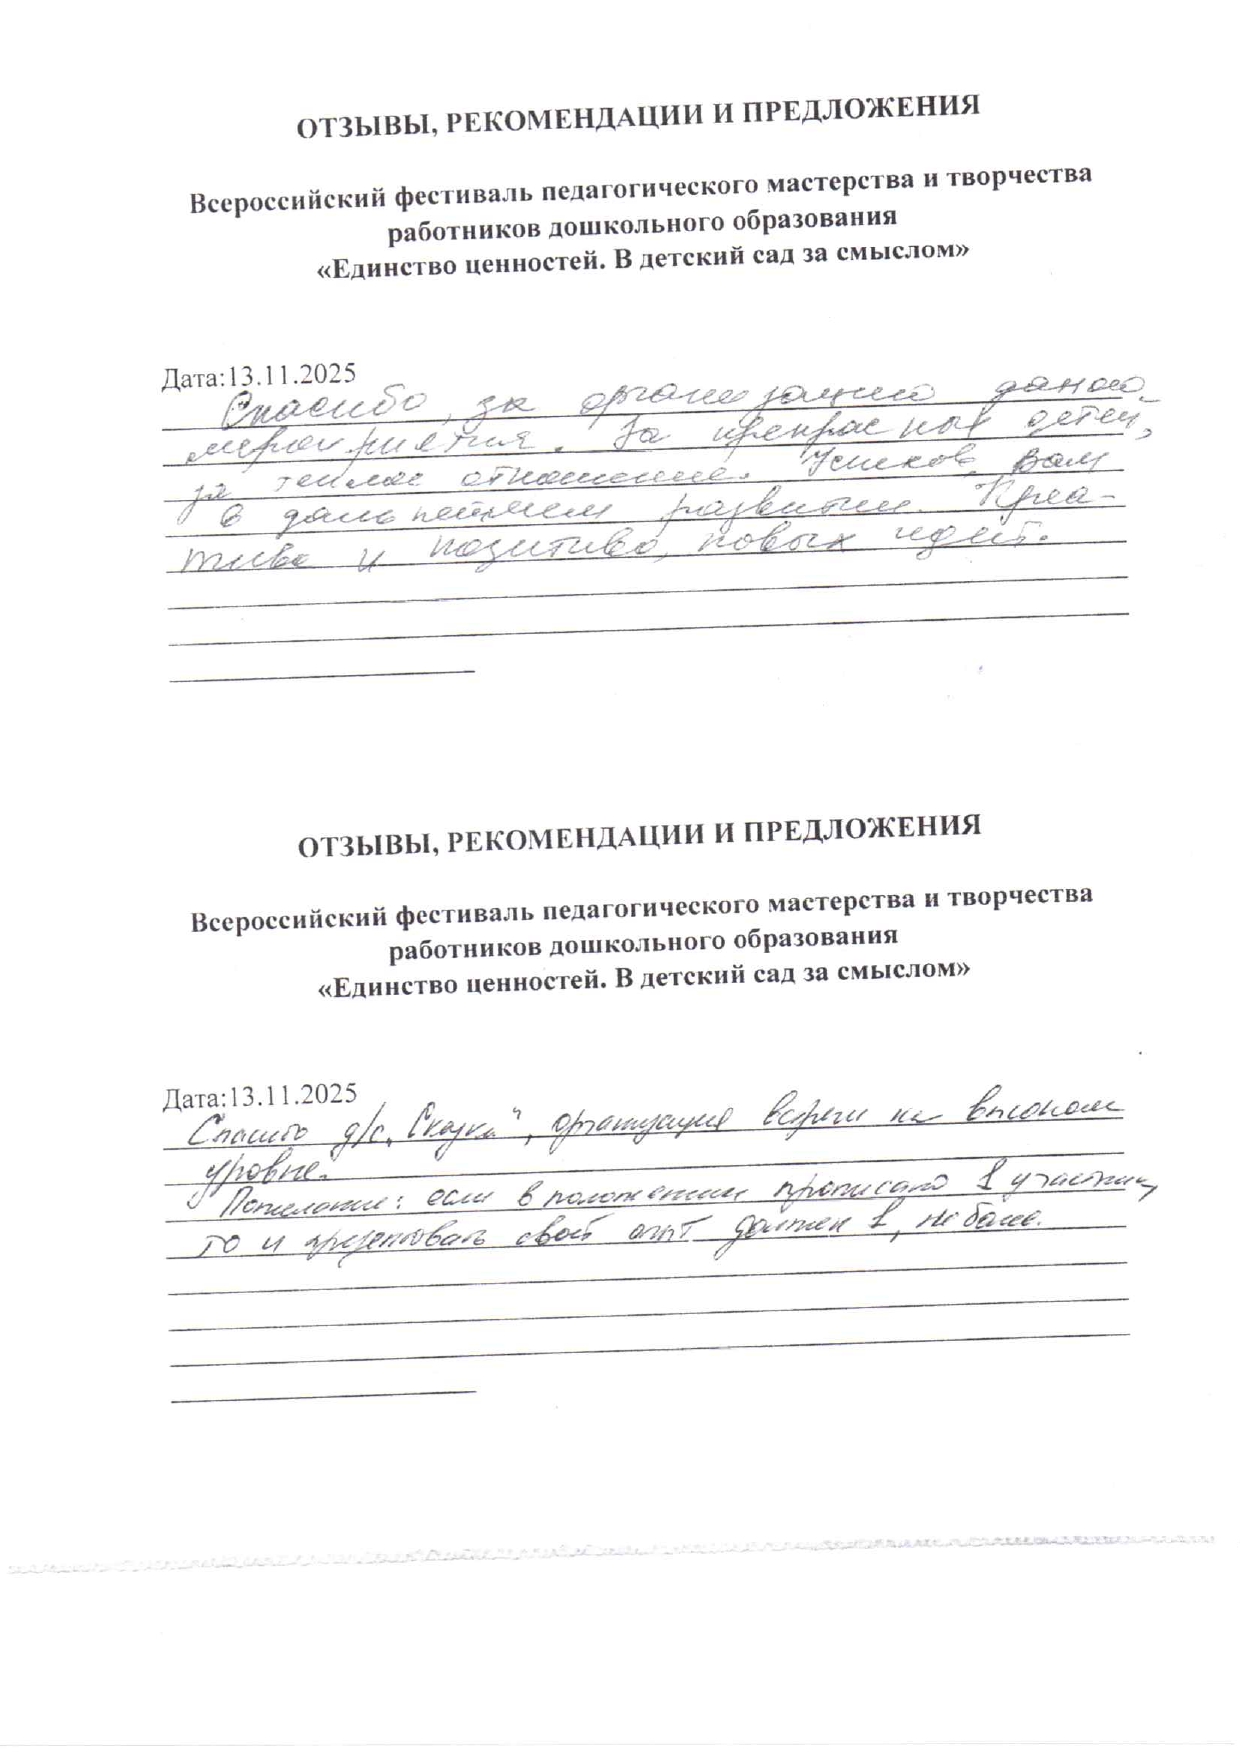 ОТЗЫВЫ, РЕКОМЕНДАЦИИ И ПРЕДЛОЖЕНИЯ
Всероссийский фестиваль педагогического мастерства и творчества
работников дошкольного образования
«Единство ценностей. В детский сад за смыслом»
Дата:13.11.2025
Спасибо, за организацию данного
мероприятия. За прекрасных детей,
за теплое отношение. Успехов Вам
в дальнейшем развитии. Креа-
тива и позитива, новых идей.
ОТЗЫВЫ, РЕКОМЕНДАЦИИ И ПРЕДЛОЖЕНИЯ
Всероссийский фестиваль педагогического мастерства и творчества
работников дошкольного образования
«Единство ценностей. В детский сад за смыслом»
Дата:13.11.2025
Спасибо д/с „Сказка", организация встречи на высоком
уровне.
Пожелание: если в положении прописано 1 участник,
то и презентовать свой опыт должен 1, не более.